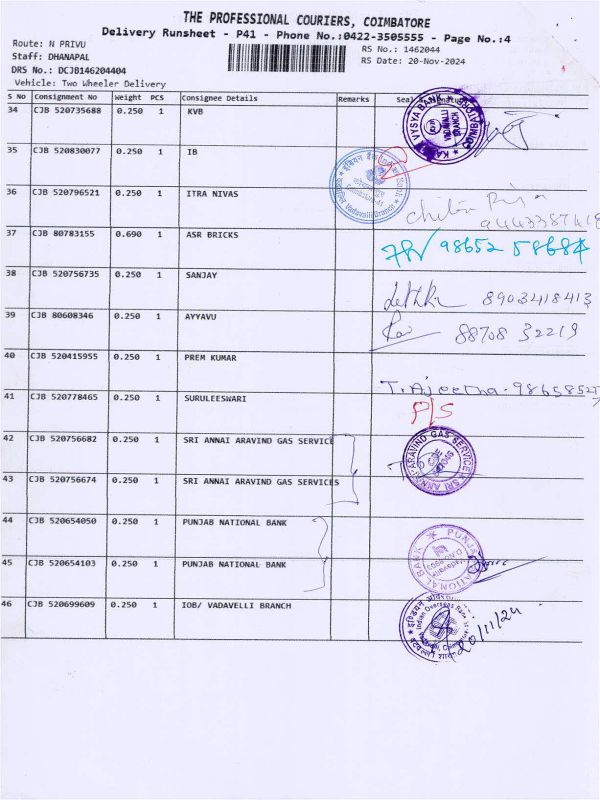 THE PROFESSIONAL COURIERS, COIMBATORE
Delivery Runsheet - P41 - Phone No.:0422-3505555 - Page No.:4
Route: N PRIVU
RS No.: 1462044
Staff: DHANAPAL
RS Date: 20-Nov-2024
DRS No.: DCJB146204404
Vehicle: Two Wheeler Delivery
S No Consignment No Weight PCS Consignee Details Remarks
34 CJB 520735688 0.250 1 KVB
VYSYA BANK VADAVALLI BRANCH
35 CJB 520830077 0.250 1 IB
Vadavalli Branch
36 CJB 520796521 0.250 1 ITRA NIVAS
37 CJB 80783155 0.690 1 ASR BRICKS 98652 58684
38 CJB 520756735 0.250 1 SANJAY 8903418413
39 CJB 80608346 0.250 1 AYYAVU 88708 32219
40 CJB 520415955 0.250 1 PREM KUMAR
41 CJB 520778465 0.250 1 SURULEESWARI P/S
42 CJB 520756682 0.250 1 SRI ANNAI ARAVIND GAS SERVICE
SRI ANNAI ARAVIND GAS SERVICE
43 CJB 520756674 0.250 1 SRI ANNAI ARAVIND GAS SERVICES
44 CJB 520654050 0.250 1 PUNJAB NATIONAL BANK
PUNJAB NATIONAL BANK
45 CJB 520654103 0.250 1 PUNJAB NATIONAL BANK
46 CJB 520699609 0.250 1 IOB/ VADAVELLI BRANCH
Indian Overseas Bank
20/11/24